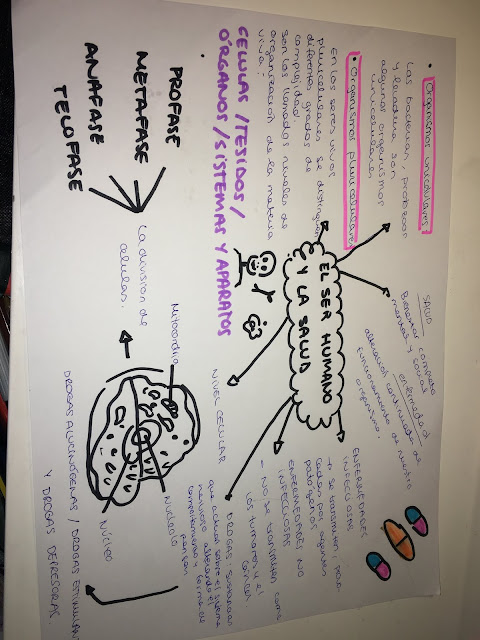 • Organismos unicelulares
Las bacterias, protozoos
y levadura son
algunos organismos
unicelulares
• Organismos pluricelulares
En los seres vivos
pluricelulares se distinguen
diferentes grados de
complejidad.
son los llamados niveles de
organización de la materia
viva:
CELULAS / TEJIDOS /
ORGANOS / SISTEMAS Y APARATOS
PROFASE
METAFASE
ANAFASE
TELOFASE
La división de
celulas.
EL SER HUMANO
Y LA SALUD
SALUD
Bienestar completo
mental y social
enfermedad
alteración continuada de
funcionamiento de nuestro
organismo.
ENFERMEDADES
INFECCIOSAS
→ se transmiten, por
agentes
patógenos
ENFERMEDADES NO
INFECCIOSAS
- NO se transmiten como
los tumores y el
cancer
NIVEL CELULAR
DROGAS: sustancias
que actuan sobre el sistema
nervioso alterando el
comportamiento
Mitocondria
Nucleolo
Núcleo
DROGAS ALUCINOGENAS / DROGAS ESTIMULANT
Y DROGAS DEPRESORAS.